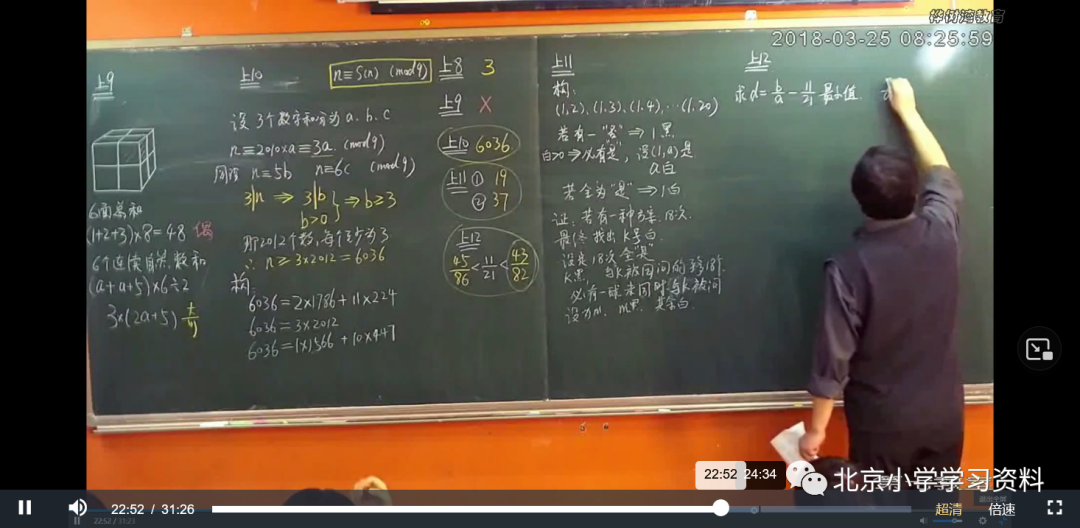 桦树湾教育
2018-03-25 08:25:59
上9
6面总和
(1+2+3)×8=48 偶
6个连续自然数和
(a+a+5)×6÷2
3×(2a+5) 奇
上10
n≡S(n) (mod 9)
设3个数字和分为a.b.c
n≡2010×a≡3a (mod 9)
同理 n≡5b n≡6c (mod 9)
3|n ⇒ 3|b
b>0
⇒b≥3
那2012个数,每个至少为3
∴ n≥3×2012=6036
构:
6036=2×1786+11×224
6036=3×2012
6036=1×1566+10×447
上8 3
上9 ×
上10 6036
上11 ① 19
② 37
上12
45/86 < 11/21 < 43/82
上11
构:
(1,2)、(1,3)、(1,4)、…(1,20)
若有一"否"⇒1黑
白>0⇒必有"是",设(1,a)是
a白
若全为"是"⇒1白
证:若有一种方案,18次.
最终找出K号白.
设定18次全"是"
上12
求d=b/a-11/21最小值.
22:52
24:34
北京小学学习资料
22:52 / 31:26
超清
倍速
22:52 / 31:23